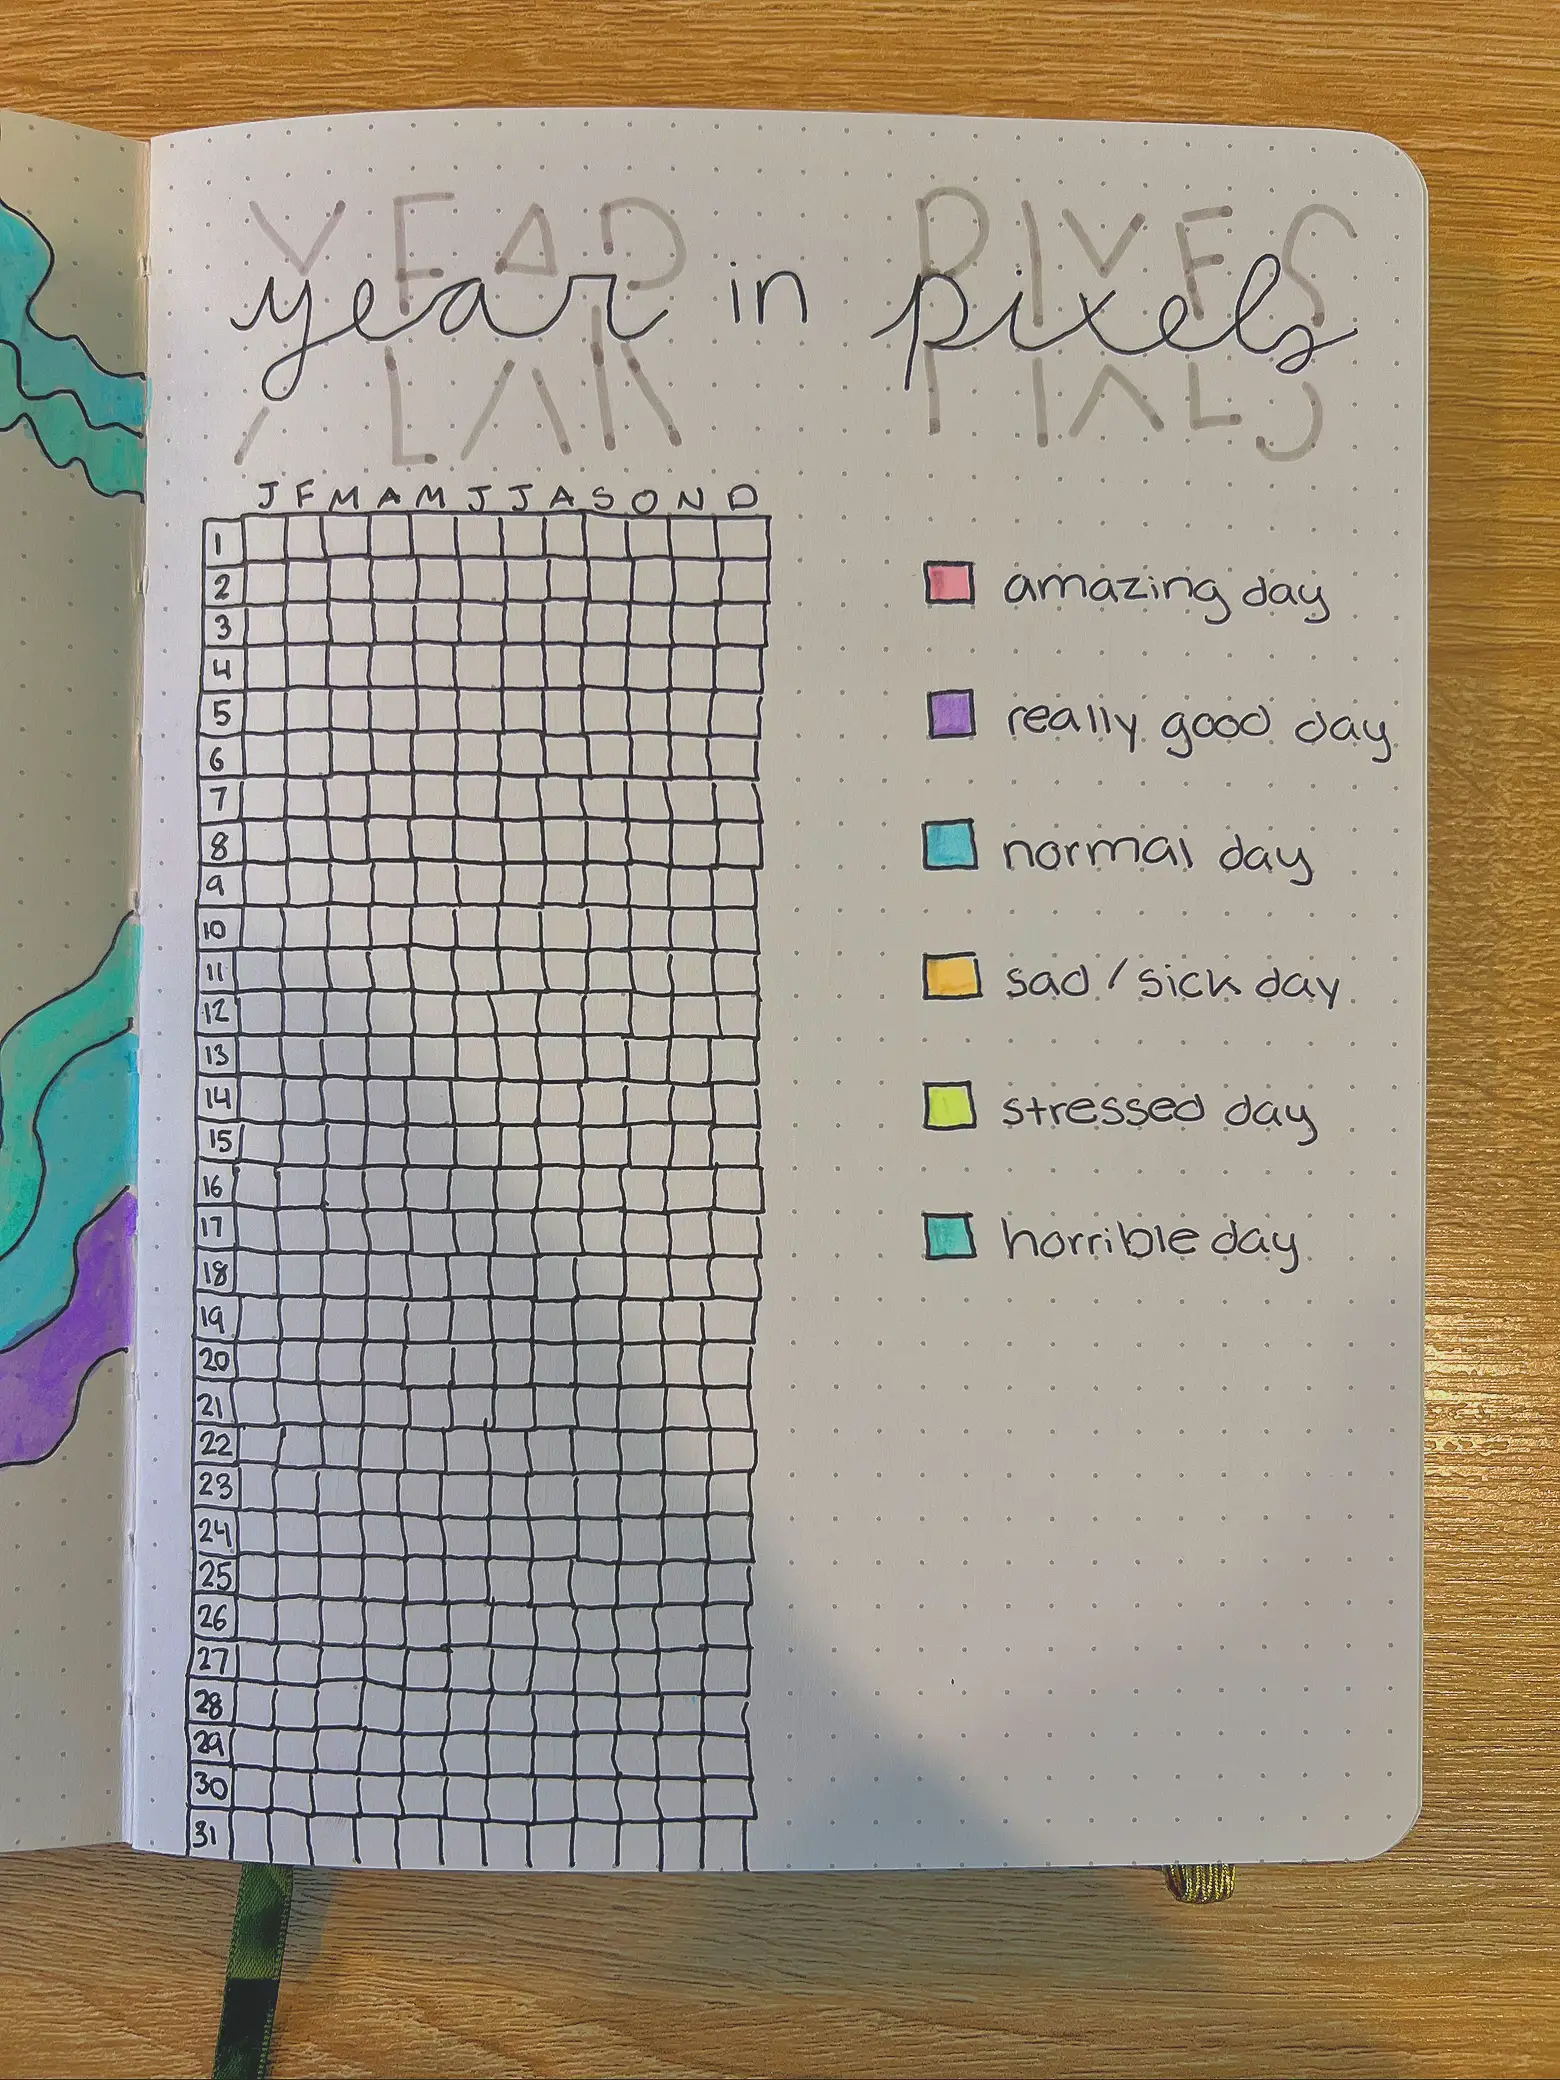 YEAR PIXELS
year in pixels
J F M A M J J A S O N D
1
2
3
4
5
6
7
8
9
10
11
12
13
14
15
16
17
18
19
20
21
22
23
24
25
26
27
28
29
30
31
amazing day
really good day
normal day
sad / sick day
stressed day
horrible day